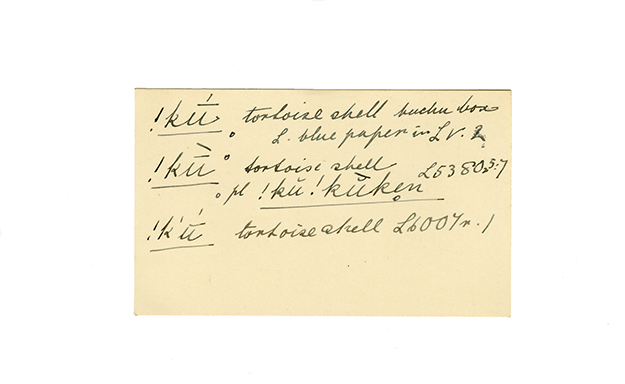 !kú̄ tortoise shell buchu box
L. blue paper in L V. 2
!kù̄ tortoise shell L5380.5:7
pl !kŭ !kŭke̥n
!k'ú̄ tortoise shell L6007r. 1